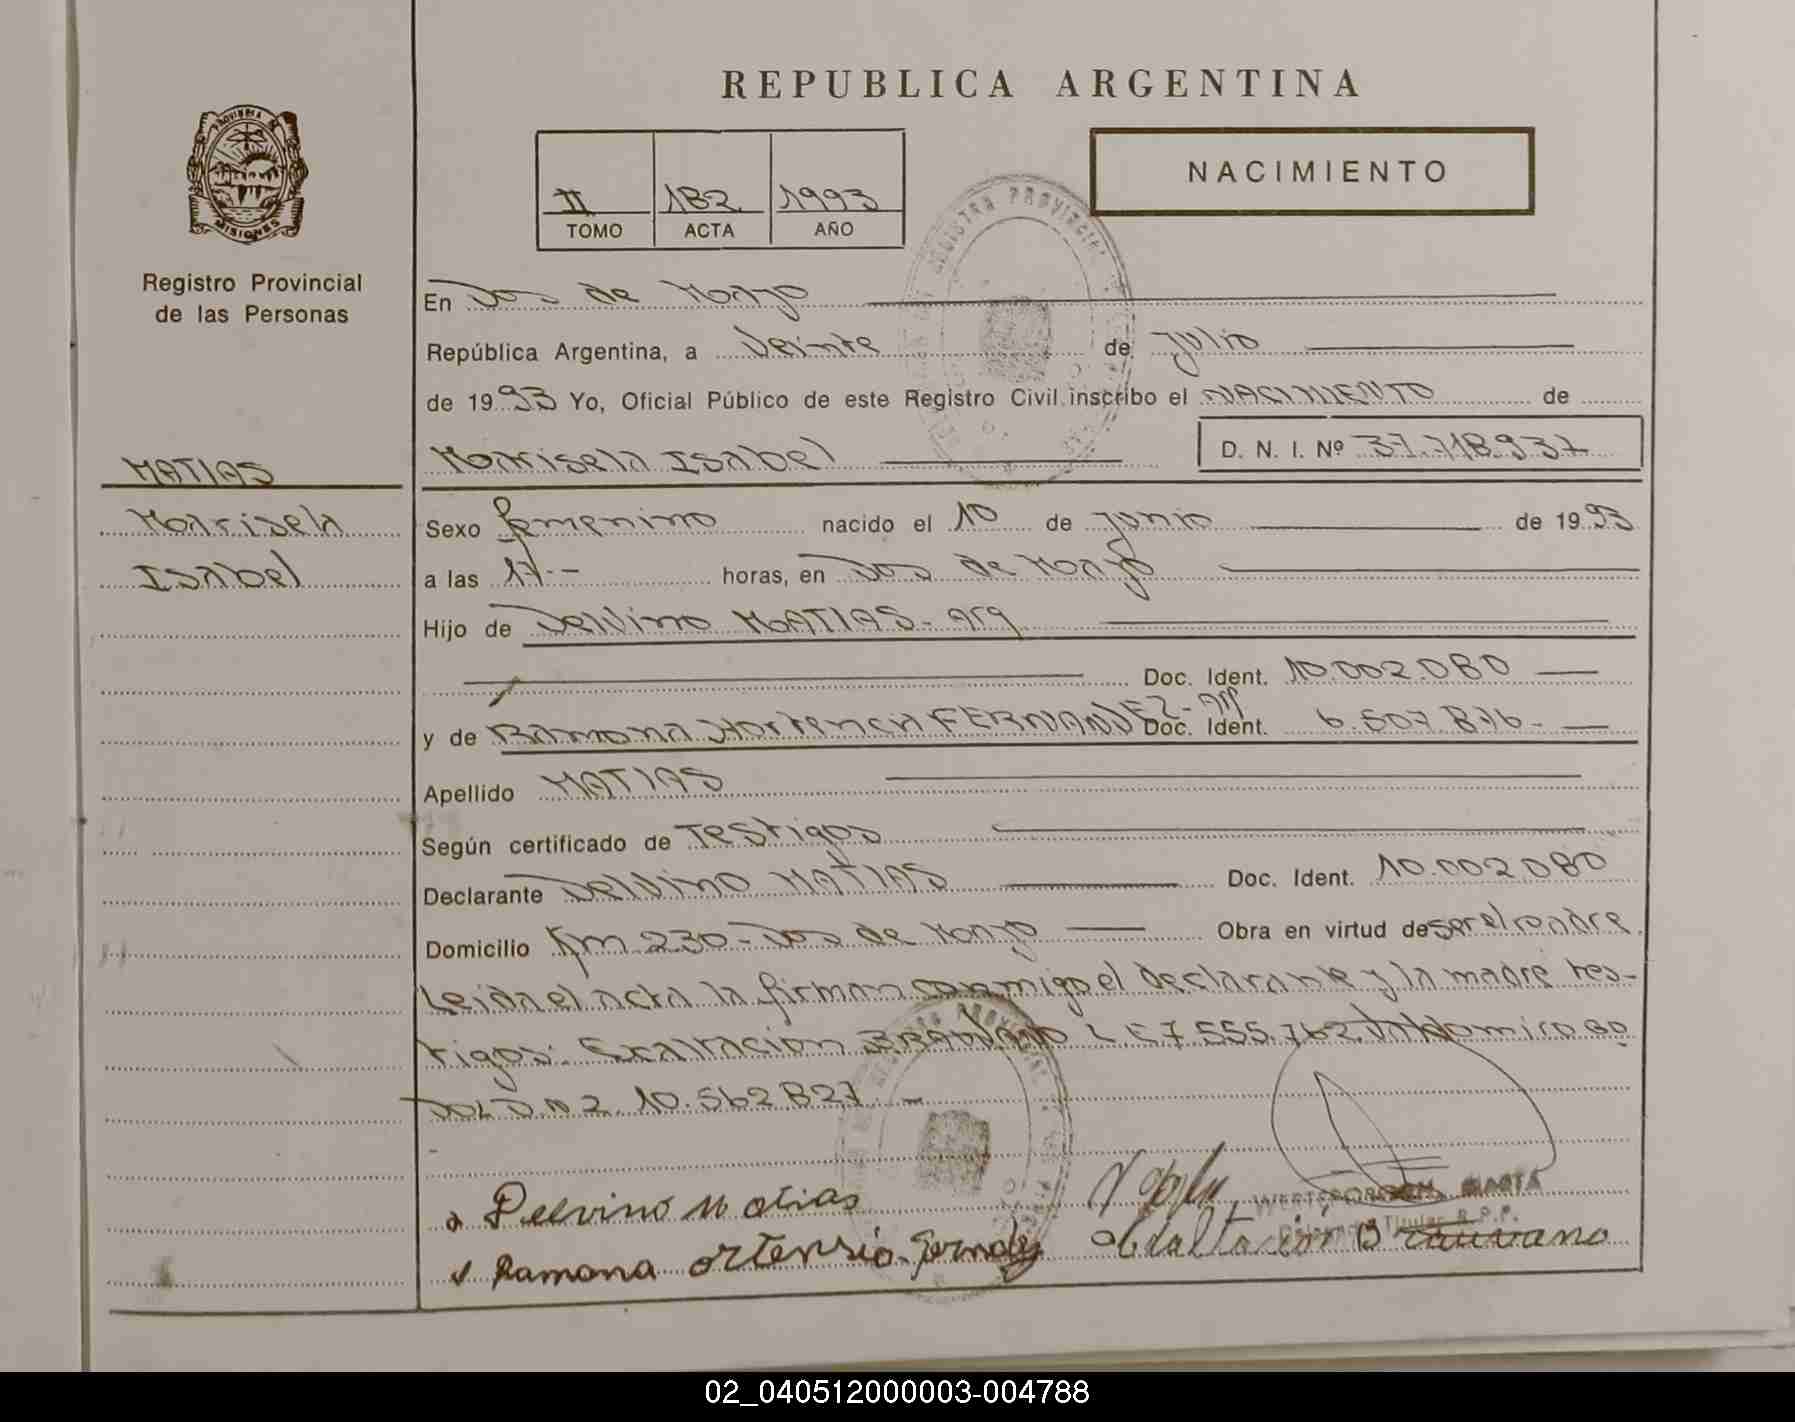 REPUBLICA ARGENTINA
PROVINCIA DE
MISIONES
Registro Provincial
de las Personas
II 182 1993
TOMO ACTA AÑO
NACIMIENTO
En Dos de Mayo
República Argentina, a Veinte de Julio
de 1993 Yo, Oficial Público de este Registro Civil inscribo el NACIMIENTO de
Marisela Isabel D. N. I. Nº 37.718.937
MATIAS
Marisela
Isabel
Sexo femenino nacido el 10 de Junio de 1993
a las 17.-- horas, en Dos de Mayo
Hijo de Delvino MATIAS- Arg
Doc. Ident. 10.002.080
y de Ramona Hortencia FERNANDEZ- Arg Doc. Ident. 6.507.876-
Apellido MATIAS
Según certificado de Testigos
Declarante Delvino MATIAS Doc. Ident. 10.002.080
Domicilio Km 230- Dos de Mayo Obra en virtud de ser el padre
Leida el acta la firman conmigo el declarante y la madre tes-
tigos: Exaltacion L E 7.555.762
10.562827 -
Delvino Matias
Ramona Ortensia
02_040512000003-004788